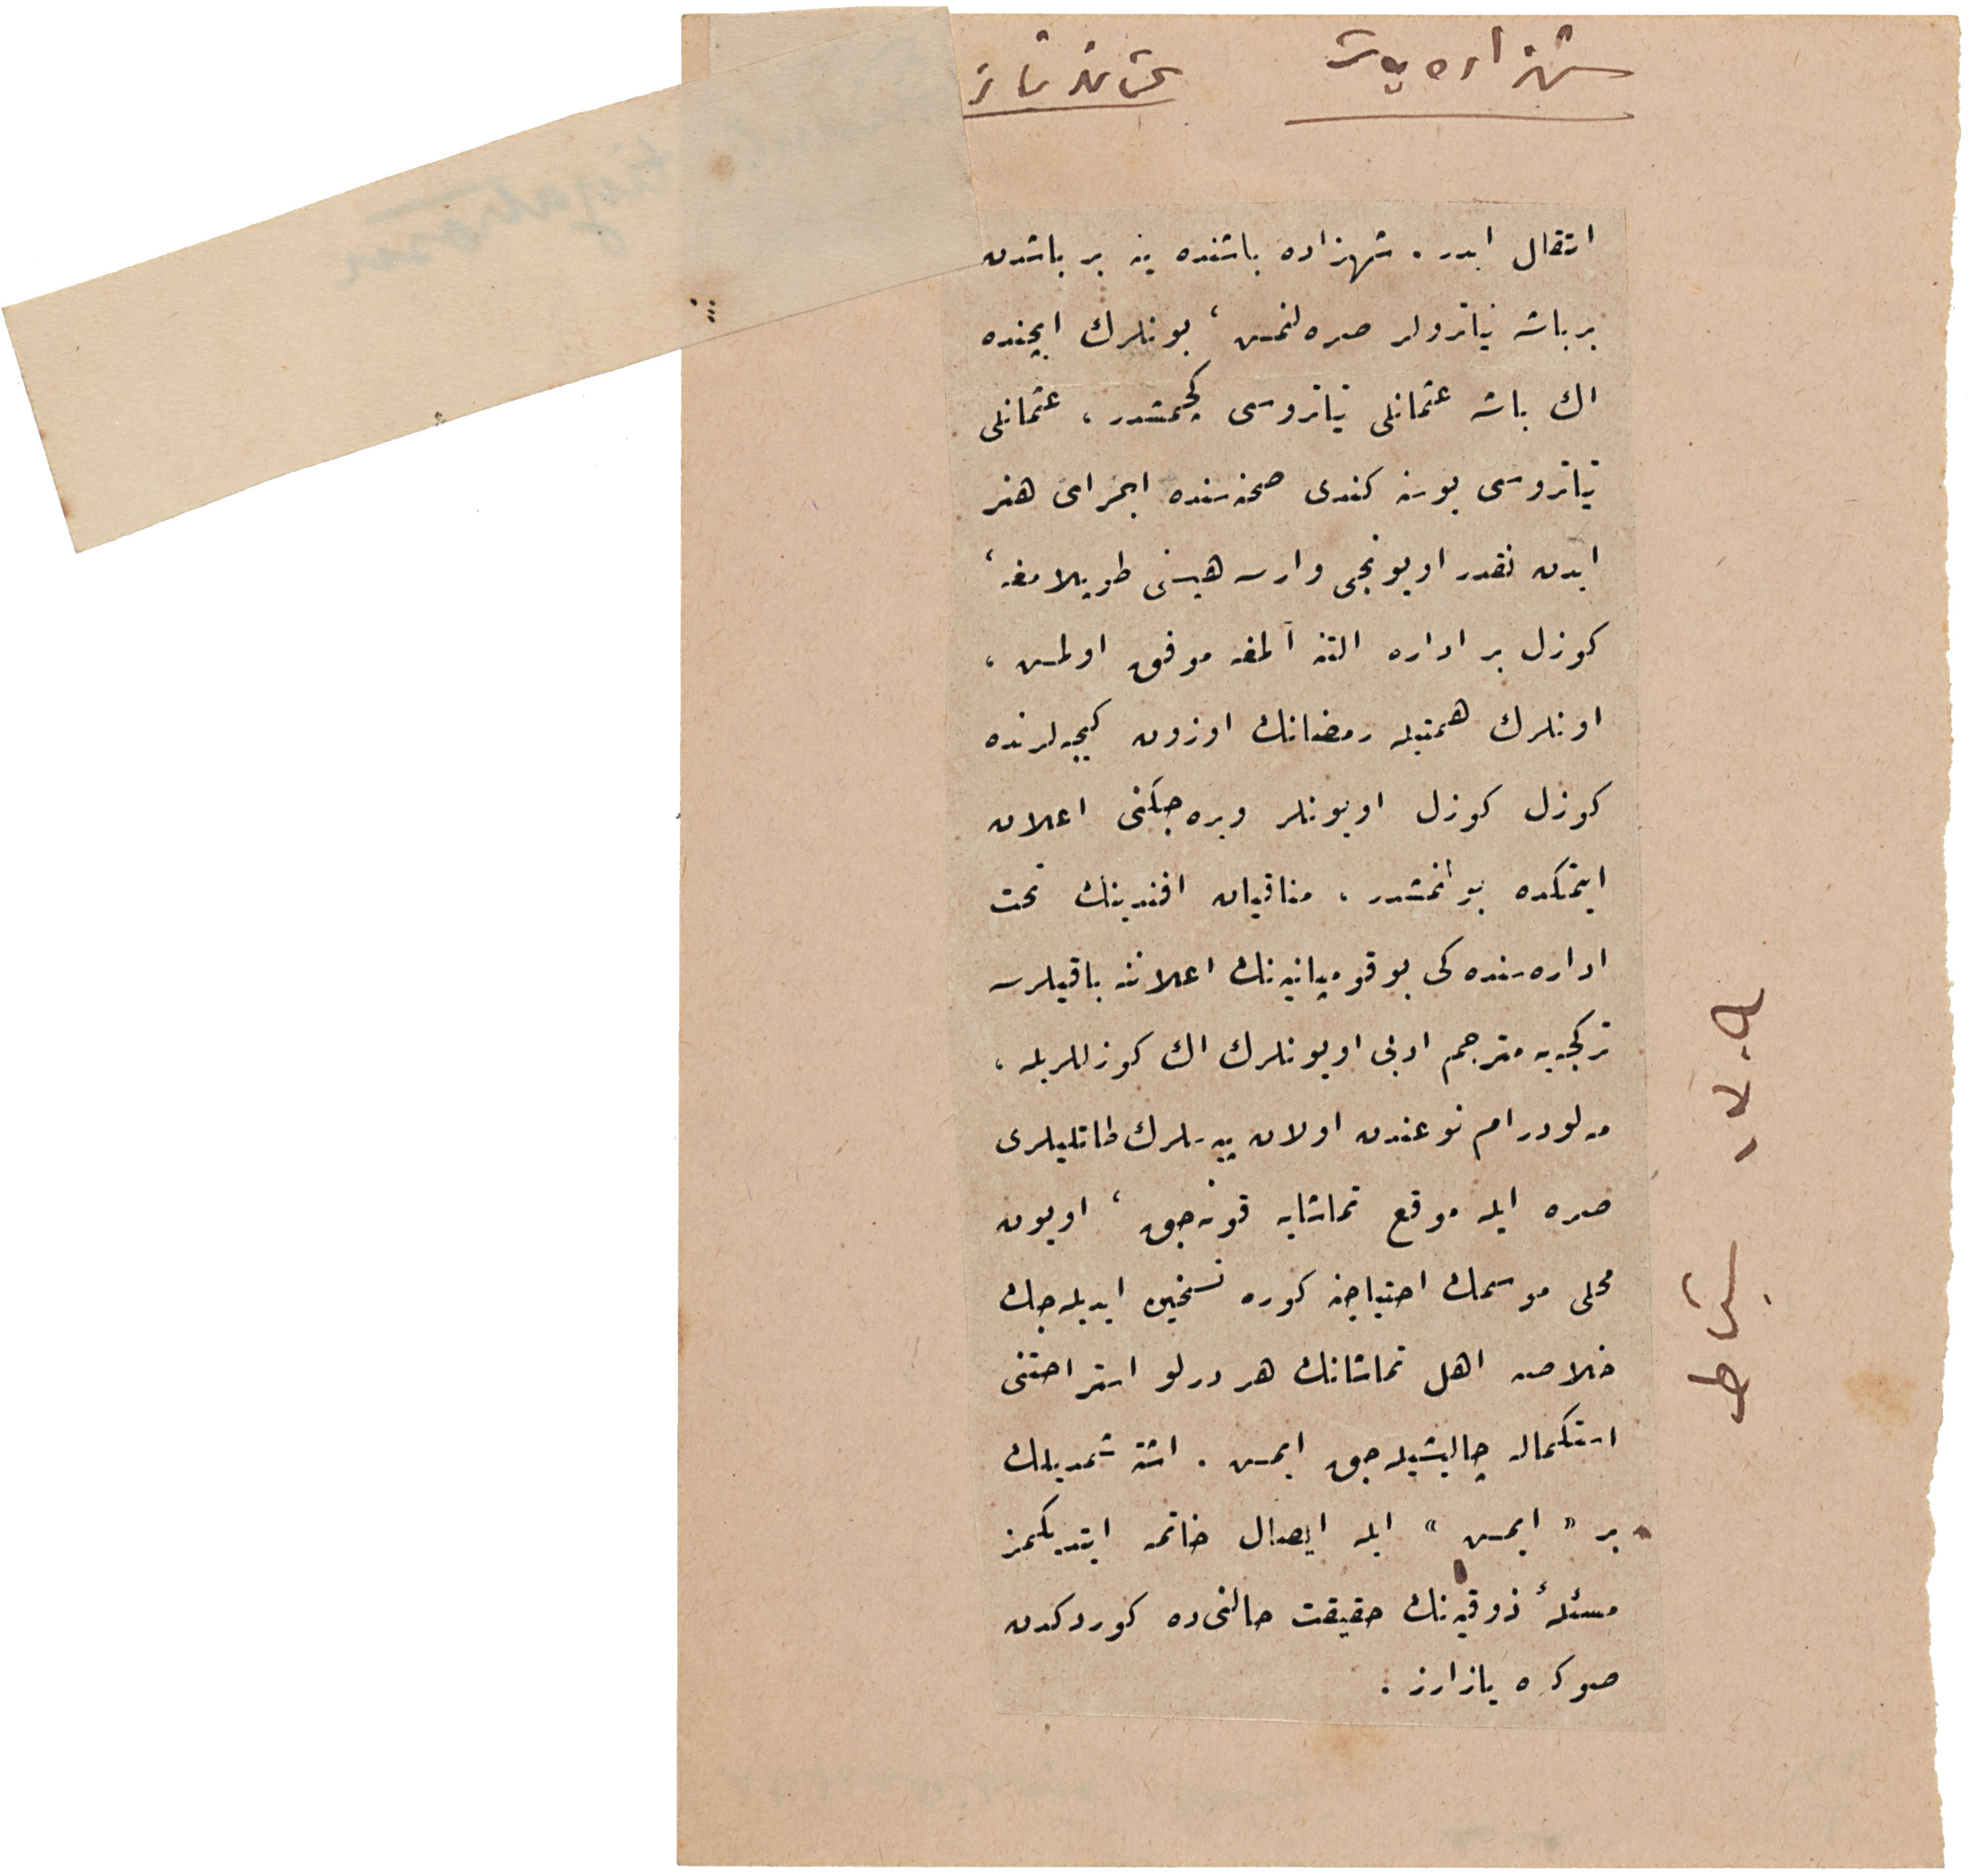 شهزاده باشی
عثمانلی تیاترو
انتقال ایدر . شهزاده باشنده ینه بر باشدن
بر باشه تیاترولر صره‌لنمش ، بونلرك ایچنده
اك باشه عثمانلی تیاتروسی كچمشدر ، عثمانلی
تیاتروسی بو سنه كندی صحنه‌سنده اجرای هنر
ایدن نقدر اویونجی وارسه هپسنی طوپلامغه ،
كوزل بر اداره آلتنه آلمغه موفق اولمش ،
اونلرك همتیله رمضانك اوزون كیجه‌لرنده
كوزل كوزل اویونلر ویره‌جكنی اعلان
ایتمكده بولنمشدر ، مناقیان افندینك تحت
اداره‌سنده كی بو قومپانیه‌نك اعلاننه باقیلرسه
تركجه‌یه مترجم ادبی اویونلرك اك كوزللریله ،
مه‌لودرام نوعندن اولان پیه‌سلرك طاتلیلری
صره ایله موقع تماشایه قونه‌جق ، اویون
محلی موسمك احتیاجنه كوره تسخین ایدیله‌جك
خلاصه اهل تماشانك هر درلو استراحتنی
استكماله چالیشیله‌جق ایمش . اشته شمدیلك
بر « ایمش » ایله ایصال خاتمه ایتدیكمز
مسئلهٔ ذوقیه‌نك حقیقت حالنی ده كوردكدن
صوكره یازارز .